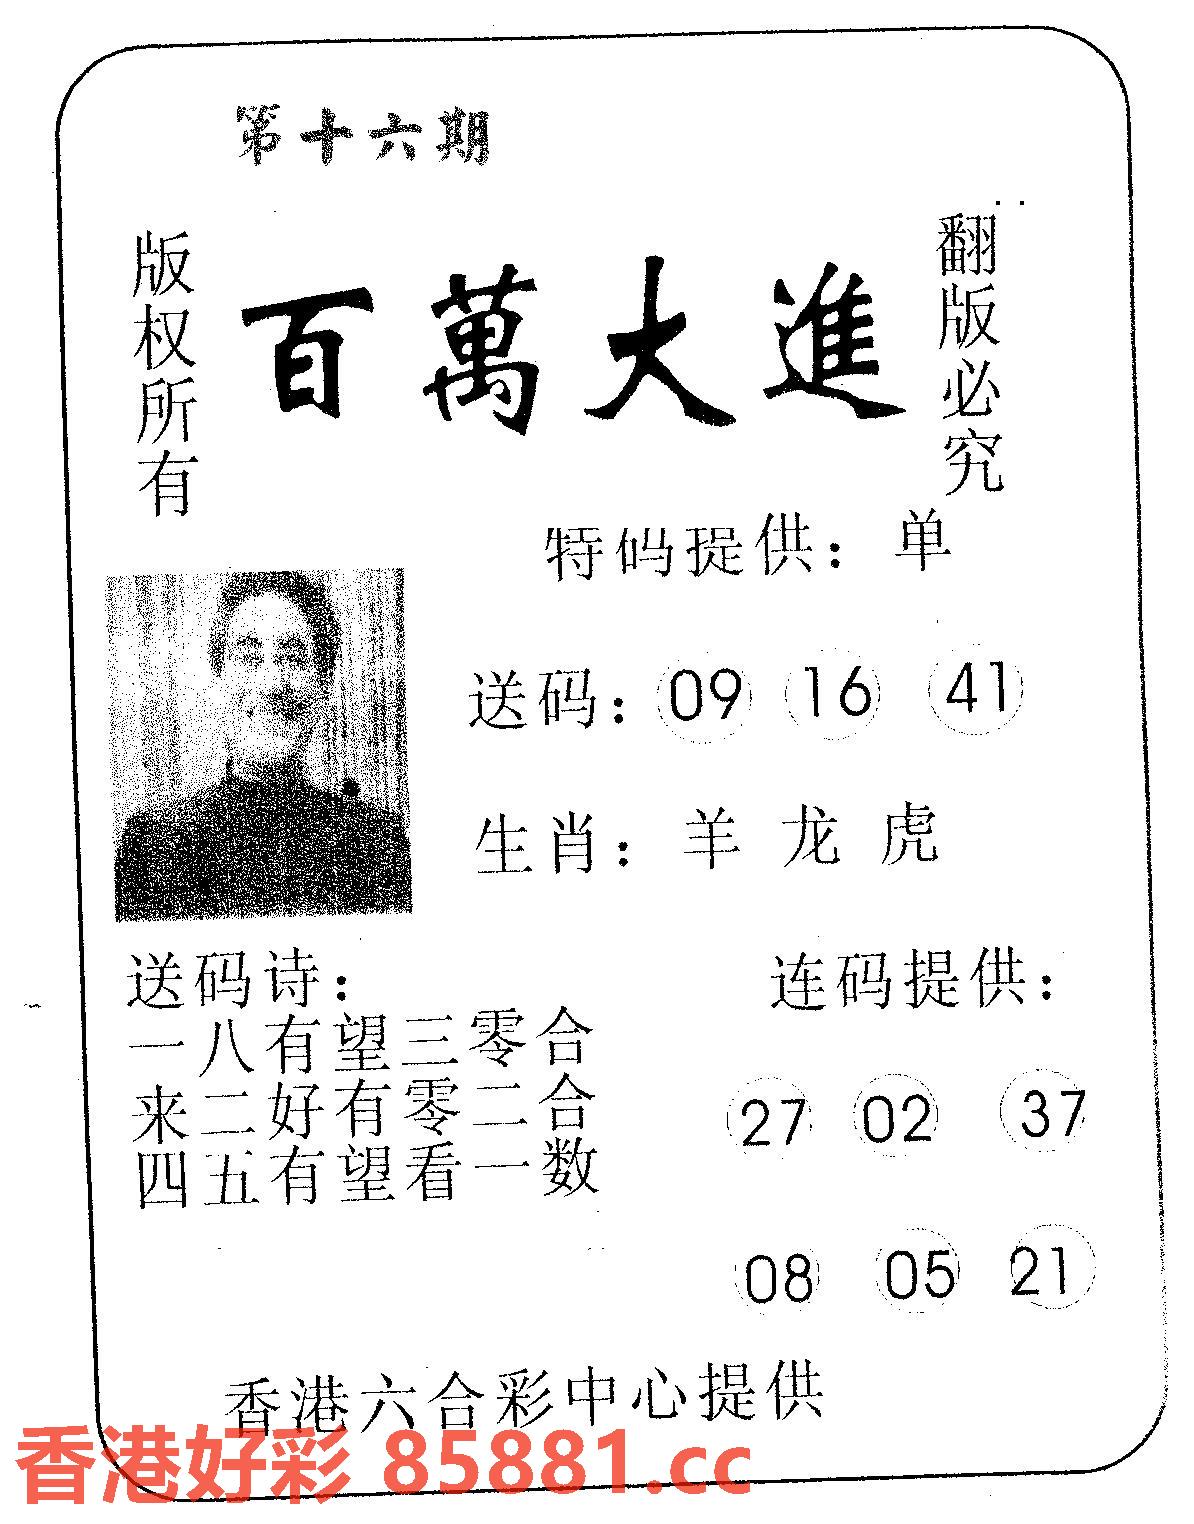 第十六期
版权所有
百萬大進
翻版必究
特码提供：单
送码：09 16 41
生肖：羊 龙 虎
送码诗：
一八有望三零合
来二好有零二合
四五有望看一数
连码提供：
27 02 37
08 05 21
香港六合彩中心提供
香港好彩 85881.cc